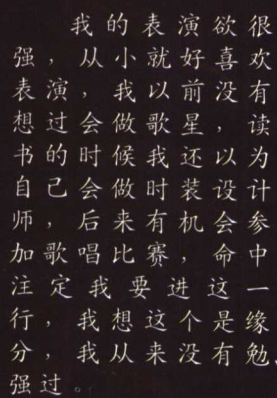 我的表演欲很
强，从小就好喜欢
表演，我以前没有
想过会做歌星，读
书的时候我还以为
自己会做时装设计
师，后来有机会参
加歌唱比赛，命中
注定我要进这一
行，我想这个是缘
分，我从来没有勉
强过。